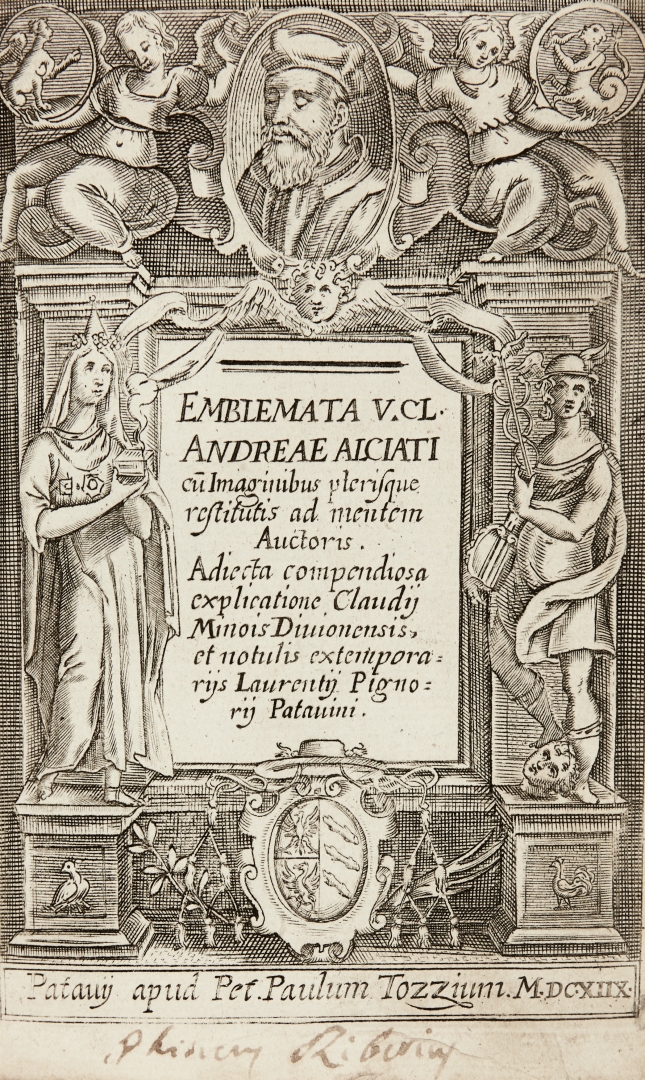 EMBLEMATA V.CL.
ANDREAE ALCIATI
cū Imaginibus plerisque
restitutis ad mentem
Auctoris.
Adiecta compendiosa
explicatione Claudij
Minois Diuionensis,
et notulis extempora=
rijs Laurentij Pigno=
rij Patauini.
Patavij apud Pet. Paulum Tozzium. M.DC.XIIX.